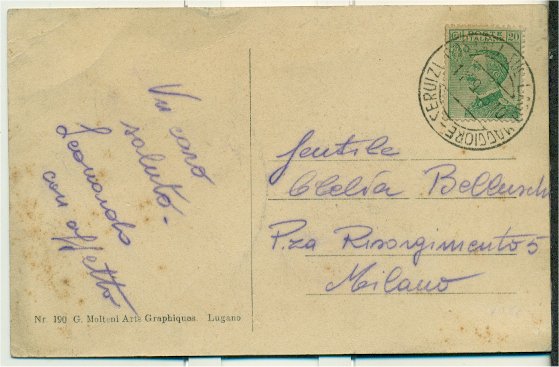 Un caro
saluto.
Leonardo
con affetto
Nr. 190 G. Molteni Arts Graphiques Lugano
POSTE ITALIANE 20
MAGGIORE SERVIZI
Gentile
Clelia Bellusch
P.za Risorgimento 5
Milano